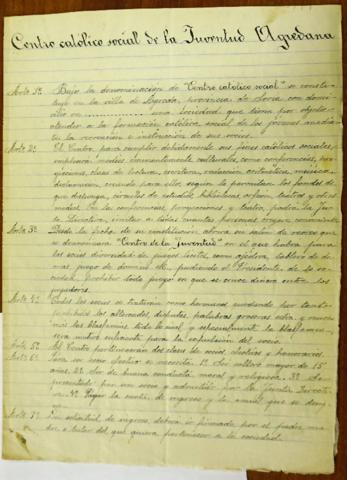 Centro católico social de la Juventud Agredana
Arto 1o. Bajo la denominacion de "Centro católico social" se consti-
tuye en la villa de Agreda, provincia de Soria con domi-
cilio en .......... una sociedad que tiene por objeto
atender a la formación católica social de los jovenes media-
te la recreación e instrucción de sus socios.
Arto 2o. El Centro para cumplir debidamente sus fines católicos sociales,
empleará medios honestamente culturales como conferencias,
clases de lectura, escritura, aritmetica, musica,
creando para ello, segun lo permitan los fondos de
que disponga, circulos de estudios, bibliotecas, teatros y
En las conferencias, y teatro podrá la Jun-
ta Directiva, invitar a todas cuantas personas crea
Arto 3o. Desde la fecha de su constitucion, abrirá su salón de recreo que
se denominara "Centro de la Juventud" en el que habrá para
los socios diversidad de juegos licitos, como ajedrez, tablero de da-
mas, juego de domino etc., pudiendo el Presidente de la so-
ciedad prohibir todo juego en que se cruce dinero entre los
jugadores.
Arto 4o. Todos los socios se trataran como hermanos quedando por tanto
prohibidos los altercados, disputas, palabras groseras
las blasfemias, y especialmente la blasfemia
será motivo suficiente para la expulsión del socio.
Arto 5o. Al Centro perteneceran dos clases de socios, activos y honorarios.
Arto 6o. Para ser socio activo se necesita: 1o Ser soltero mayor de 15
años. 2o Ser de buena conducta moral y religiosa. 3o Ser
presentado por un socio y admitido por la Junta Directi-
va. 4o Pagar la cuota de ingreso y la anual que se
Arto 7o. La solicitud de ingreso, deberá ir firmada por el padre, ma-
dre o tutor del que quiera pertenecer a la sociedad.